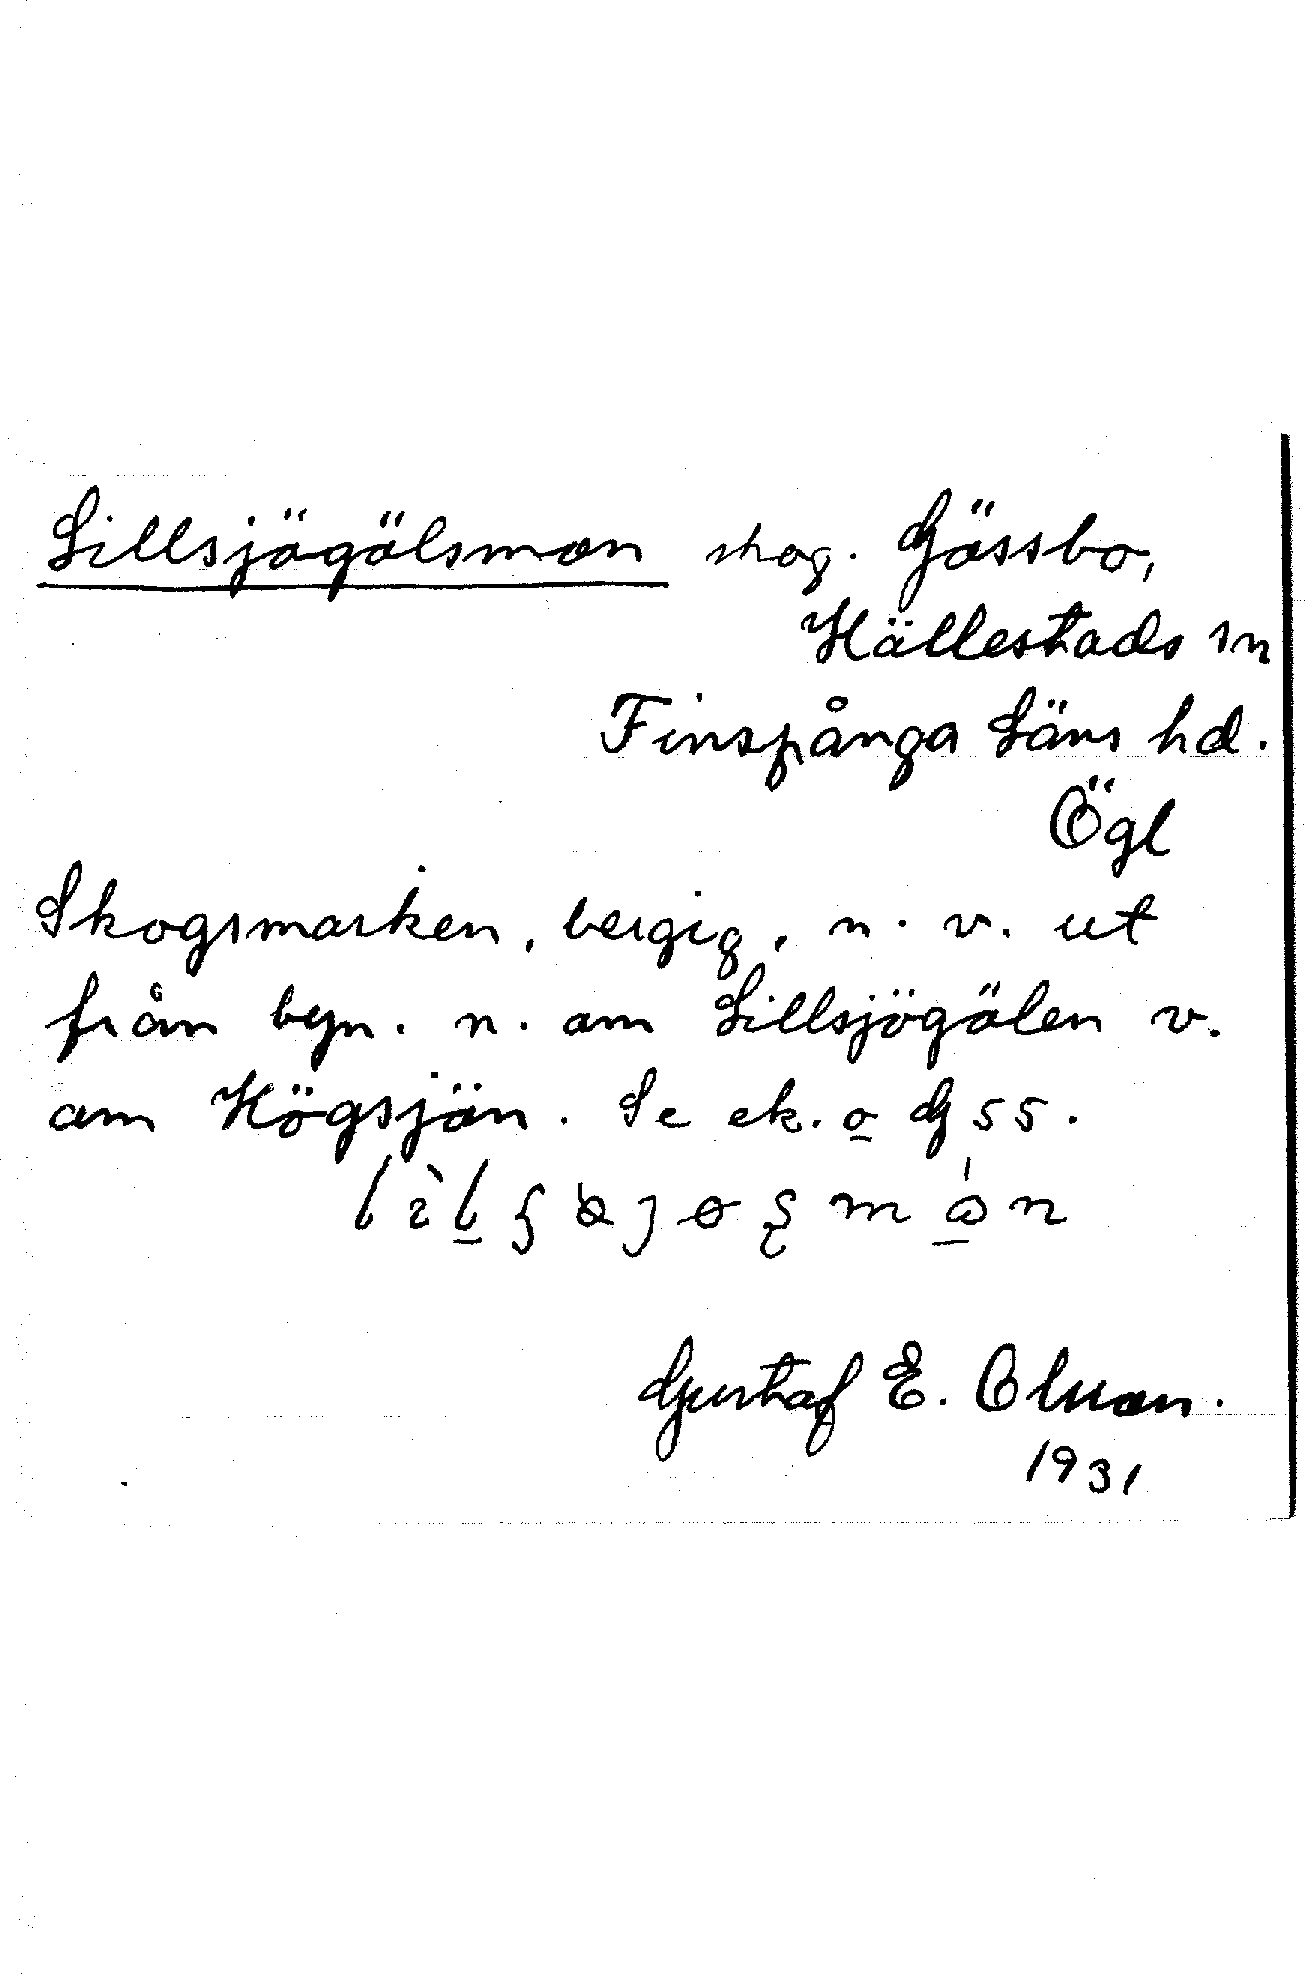 Lillsjögölsmon skog. Gössbo,
Hällestads sn
Finspånga Läns hd.
Ögl
Skogsmarken, bergig, n. v. ut
från byn. n. om Lillsjögölen v.
om Högsjön. Se ek. o G 55.
Gustaf E. Olson.
1931